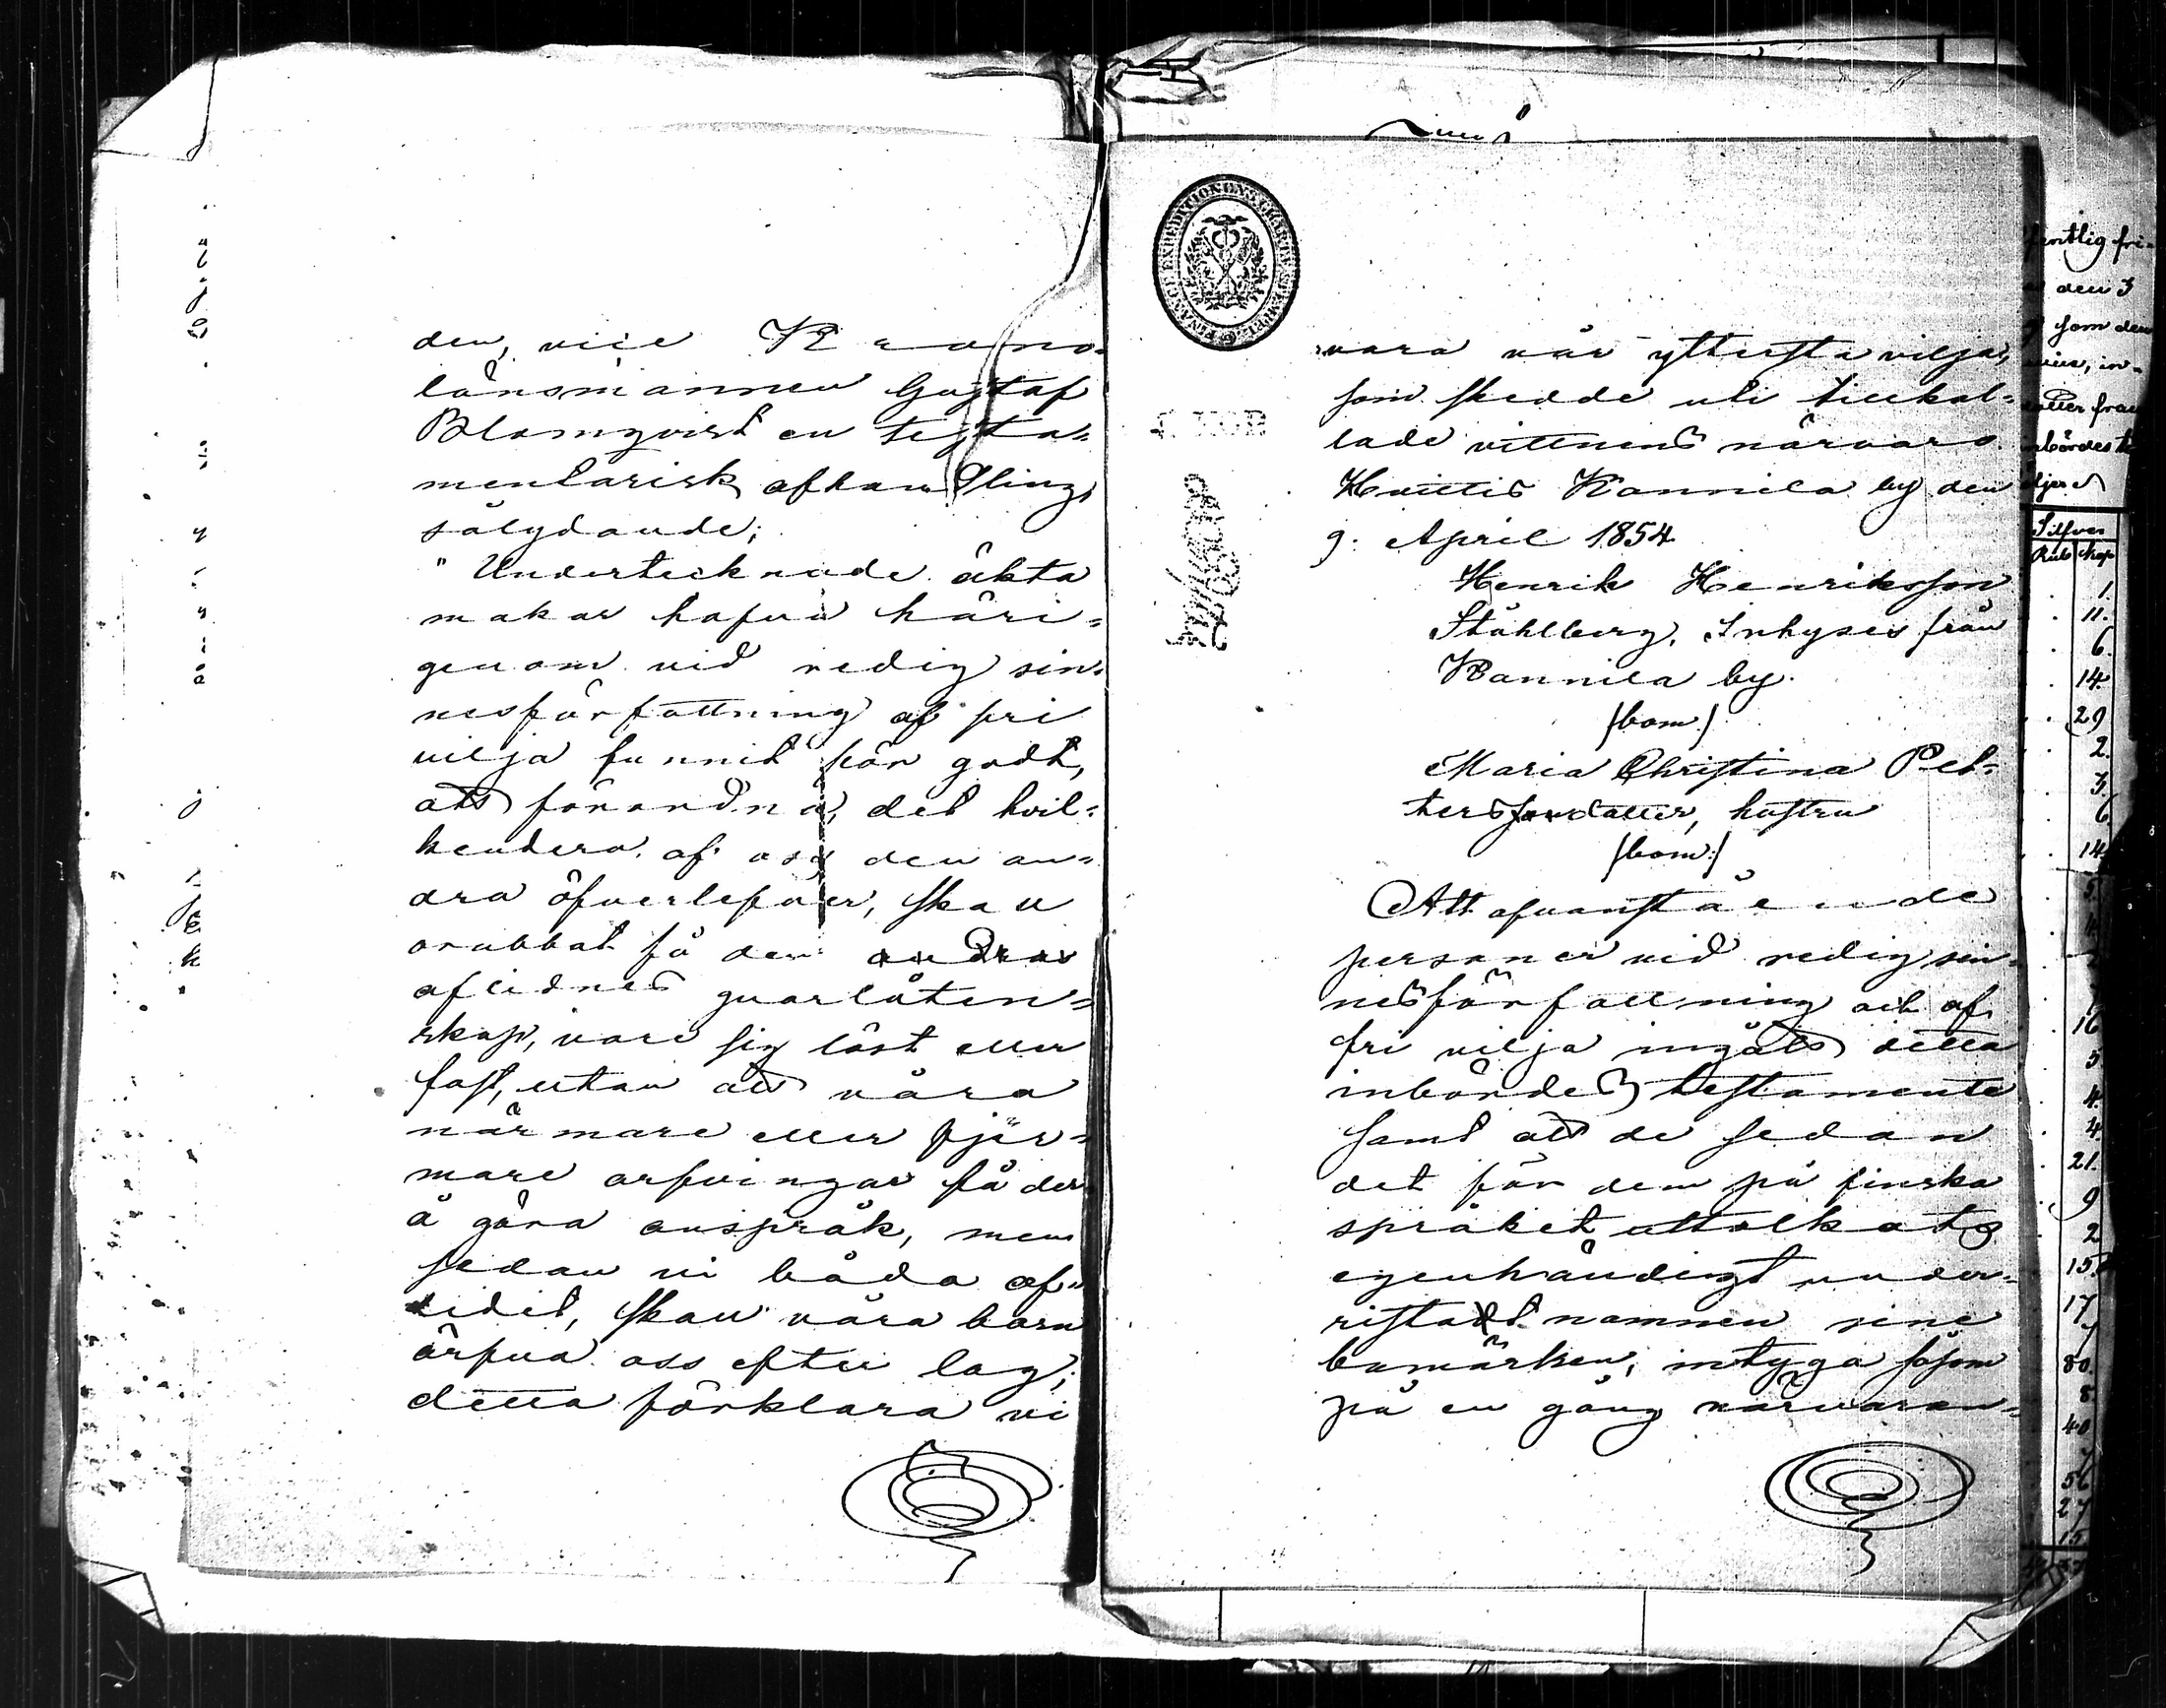 den, vice Krono-
länsmannen Gustaf
Blomqvist en testa=
mentarisk afhandling,
sålydande;
" Undertecknade äkta
makar hafva häri=
genom vid redig sin-
nesförfattning af fri
vilja funnit för godt,
att förordna, det hvil=
kendera af oss den an=
dra öfverlefver, skall
orubbat få den andras
aflidnes qvarlåten=
skap, vare sig löst eller
fast, utan att våra
närmare eller fjer=
mare arfvingar få der
å göra anspråk, men
sedan vi båda af=
lidit, skall våra barn
ärfva oss efter lag;
detta förklara vi
vara vår yttersta vilja,
som skedde uti tillkal=
lade vittnens närvaro.
Huittis Kannila by den
9: April 1854.
Henrik Henriksson
Ståhlberg, Inhyses från
Kannila by.
/bom./
Maria Christina Pet=
tersdotter, hustru
/bom:/
Att ofvanstående
personer vid redig sin=
nesförfattning och af
fri vilja ingått detta
inbördes testamente
samt att de sedan
det för dem på finska
språket uttolkats
egenhändigt under=
ristat namnen sine
bomärken, intyga såsom
på en gång närvaran=
fentlig fri-
den 3
som den
in-
otter från
nbördes te
Silfver
Rub kop
1.
11.
6.
14.
29
2.
3.
6.
14
5.
16
5.
4.
4.
21.
9
2
15.
17
7
80.
8.
40
7
56
27
15.